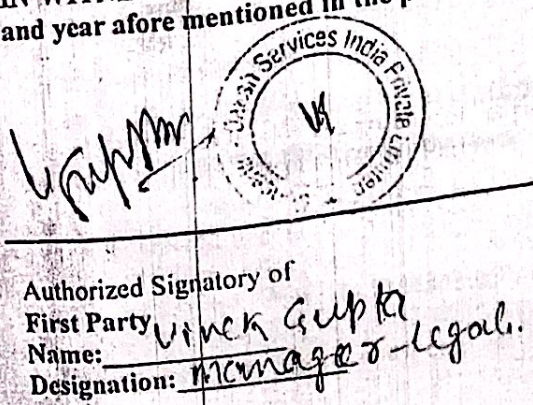 and year afore mentioned in the
Services India Private Limited
Authorized Signatory of
First Party
Name: Vivek Gupta
Designation: Manager-Legal.